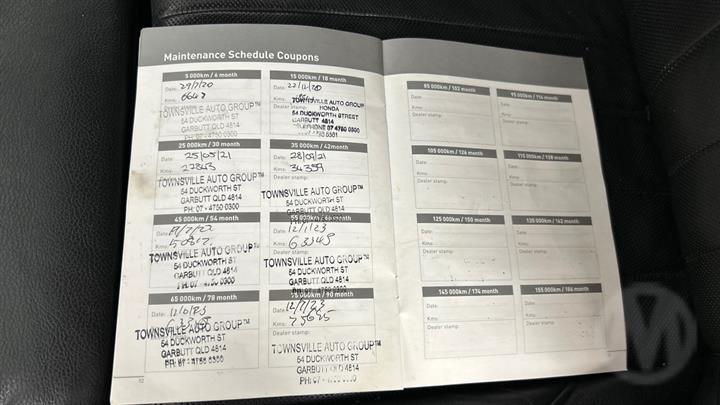 Maintenance Schedule Coupons
5 000km / 6 month
Date: 29/7/20
Kms: 6647
TOWNSVILLE AUTO GROUP™
54 DUCKWORTH ST
GARBUTT QLD 4814
PH: 07 - 4750 0300
15 000km / 18 month
Date: 22/12/20
Kms:
TOWNSVILLE AUTO GROUP
HONDA
54 DUCKWORTH STREET
GARBUTT 4814
TELEPHONE 07 4750 0300
25 000km / 30 month
Date: 25/05/21
Kms: 27843
TOWNSVILLE AUTO GROUP™
54 DUCKWORTH ST
GARBUTT QLD 4814
PH: 07 - 4750 0300
35 000km / 42month
Date: 28/09/21
Kms: 34359
Dealer stamp:
TOWNSVILLE AUTO GROUP™
54 DUCKWORTH ST
GARBUTT QLD 4814
45 000km / 54 month
Date:
Kms:
TOWNSVILLE AUTO GROUP™
54 DUCKWORTH ST
GARBUTT QLD 4814
PH: 07 - 4750 0300
Date: 12/1/23
Kms: 63345
TOWNSVILLE AUTO GROUP™
54 DUCKWORTH ST
GARBUTT QLD 4814
65 000km / 78 month
Date:
Kms:
TOWNSVILLE AUTO GROUP™
54 DUCKWORTH ST
GARBUTT QLD 4814
PH: 07 - 4750 0300
75 000km / 90 month
Date: 12/7/23
Kms: 75625
Dealer stamp:
TOWNSVILLE AUTO GROUP™
54 DUCKWORTH ST
GARBUTT QLD 4814
PH: 07 - 4750 0300
85 000km / 102 month
Date:
Kms:
Dealer stamp:
95 000km / 114 month
Date:
Kms:
Dealer stamp:
105 000km / 126 month
Date:
Kms:
Dealer stamp:
115 000km / 138 month
Date:
Kms:
Dealer stamp:
125 000km / 150 month
Date:
Kms:
Dealer stamp:
135 000km / 162 month
Date:
Kms:
Dealer stamp:
145 000km / 174 month
Date:
Kms:
Dealer stamp:
155 000km / 186 month
Date:
Kms:
Dealer stamp: